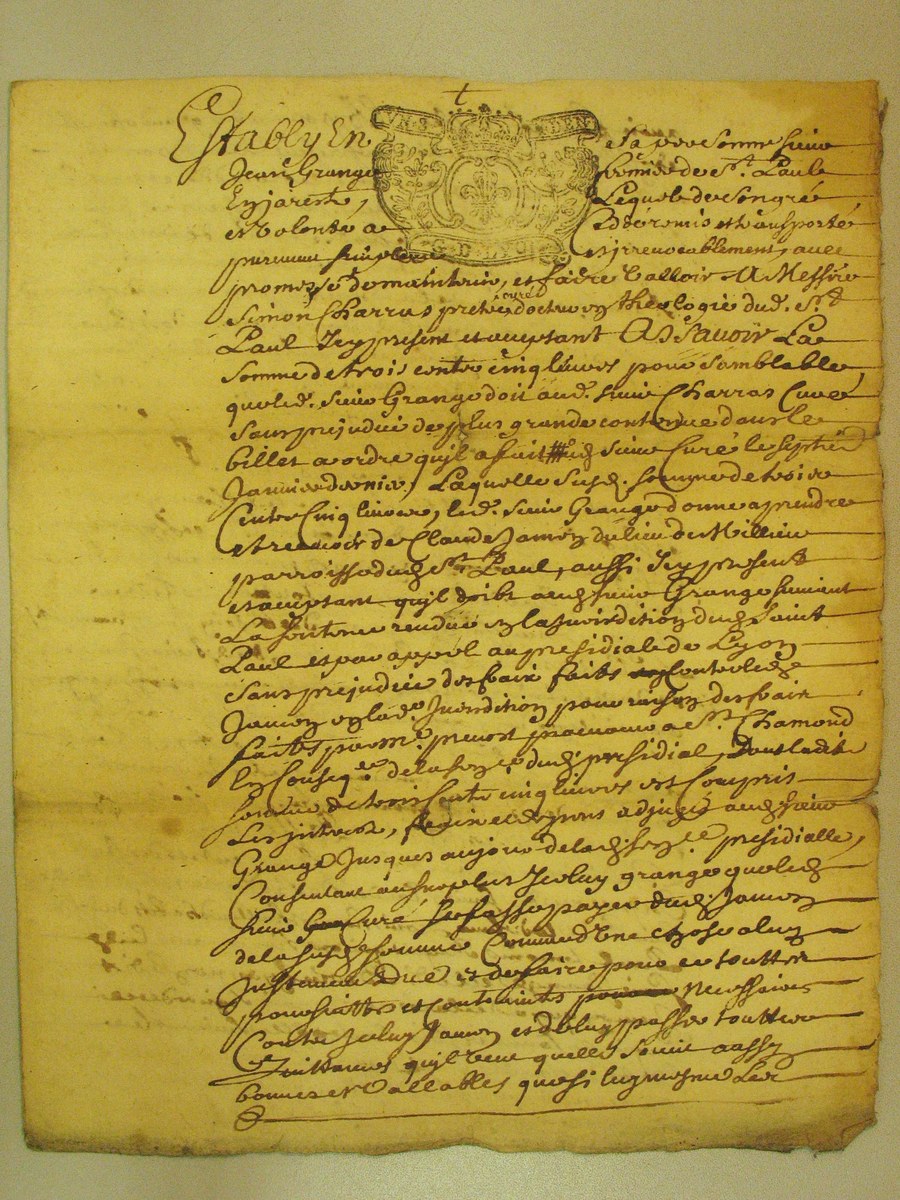 Establÿ En sa personne sieur
Jean Grange fermier de St. Paul
En Jarest, Lequel de son gré
et volonté a ceddé remis et transporté
purement simplement et irrevocablement, avec
promesse de maintenir, et faire valloir A Messire
Simon Charras prêtre curé docteur en theologie dud. St.
Paul Icy present et acceptant Asscavoir La
somme de trois cents cinq livres pour semblable
que led. sieur Grange doit aud. sieur Charras Curé
sans prejudice de plus grande contenue dans le
billet a ordre qu'il a fait aud sieur Curé le septie
Janvier dernier, Laquelle susd. somme de trois
Cents Cinq livres, led. sieur Grange donne a prendre
et recevoir de Claude Jamen du lieu de
parroisse dud St. Paul, aussi Icy present
et acceptant qu'il doibt aud sieur Grange suivant
La sentence rendue en la Jurisdiction dud Saint
Paul et par appel au presidial de Lyon
sans prejudice des fraix faits contre led
Jamen en lad. Jurisdition pour raison des fraix
faits par Me. prevost procureur a St. Chamond
En Conseqce. de la sence dud presidial, dont ladite
somme de trois Cents cinq livres est Compris
Les interets, fraix et depens adjugés aud sieur
Grange Jusques au jour de lad sence presidialle,
Consentant au surplus Iceluy grange que led
sieur Curé se fasse payer dud Jamen
de la susd somme Comme d'Une chose a luy
Justement due et de faire pour ce touttes
poursuittes et Contraintes necessaires
Contre Iceluy Jamen et de luy passer touttes
Quittances qu'il veut quelle soient aussy
bonnes et vallables que si luy mesme Les